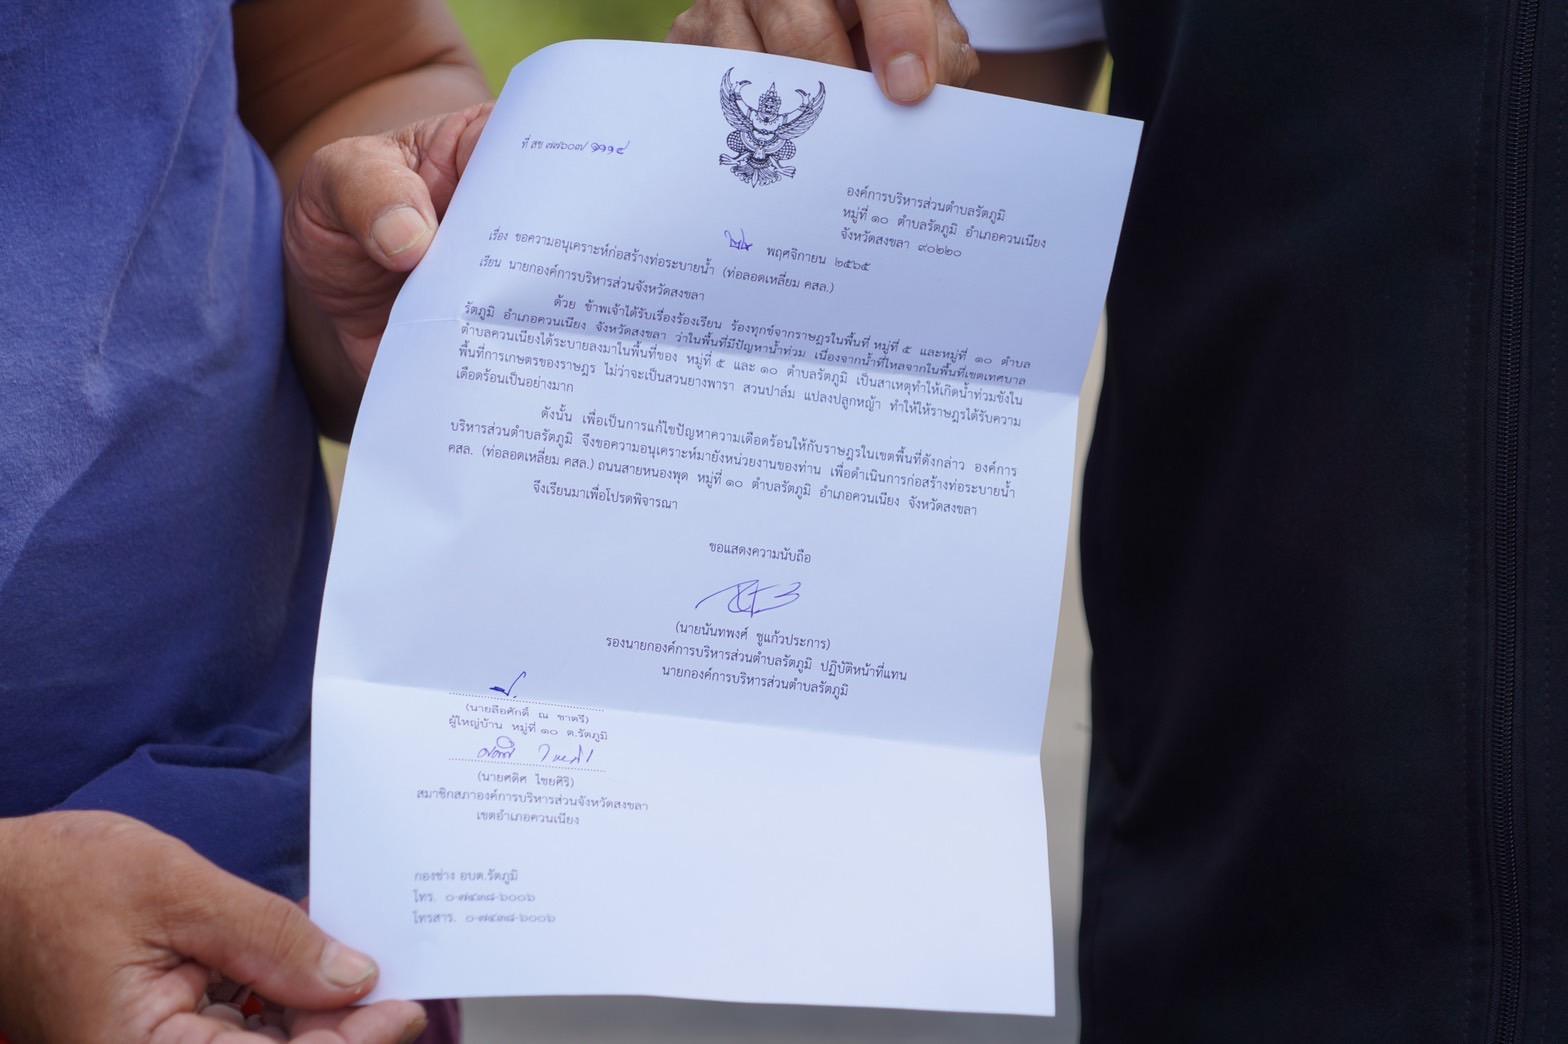 ที่ สข ๗๗๖๐๗/๑๑๑๔
องค์การบริหารส่วนตำบลรัตภูมิ
หมู่ที่ ๑๐ ตำบลรัตภูมิ อำเภอควนเนียง
จังหวัดสงขลา ๙๐๒๒๐
พฤศจิกายน ๒๕๖๕
เรื่อง ขอความอนุเคราะห์ก่อสร้างท่อระบายน้ำ (ท่อลอดเหลี่ยม คสล.)
เรียน นายกองค์การบริหารส่วนจังหวัดสงขลา
ด้วย ข้าพเจ้าได้รับเรื่องร้องเรียน ร้องทุกข์จากราษฎรในพื้นที่ หมู่ที่ ๕ และหมู่ที่ ๑๐ ตำบล
รัตภูมิ อำเภอควนเนียง จังหวัดสงขลา ว่าในพื้นที่มีปัญหาน้ำท่วม เนื่องจากน้ำที่ไหลจากในพื้นที่เขตเทศบาล
ตำบลควนเนียงได้ระบายลงมาในพื้นที่ของ หมู่ที่ ๕ และ ๑๐ ตำบลรัตภูมิ เป็นสาเหตุทำให้เกิดน้ำท่วมขังใน
พื้นที่การเกษตรของราษฎร ไม่ว่าจะเป็นสวนยางพารา สวนปาล์ม แปลงปลูกหญ้า ทำให้ให้ราษฎรได้รับความ
เดือดร้อนเป็นอย่างมาก
ดังนั้น เพื่อเป็นการแก้ไขปัญหาความเดือดร้อนให้กับราษฎรในเขตพื้นที่ดังกล่าว องค์การ
บริหารส่วนตำบลรัตภูมิ จึงขอความอนุเคราะห์มายังหน่วยงานของท่าน เพื่อดำเนินการก่อสร้างท่อระบายน้ำ
คสล. (ท่อลอดเหลี่ยม คสล.) ถนนสายหนองพุด หมู่ที่ ๑๐ ตำบลรัตภูมิ อำเภอควนเนียง จังหวัดสงขลา
จึงเรียนมาเพื่อโปรดพิจารณา
ขอแสดงความนับถือ
(นายนันทพงศ์ ชูแก้วประการ)
รองนายกองค์การบริหารส่วนตำบลรัตภูมิ ปฏิบัติหน้าที่แทน
นายกองค์การบริหารส่วนตำบลรัตภูมิ
(นายลือศักดิ์ ณ ชาตรี)
ผู้ใหญ่บ้าน หมู่ที่ ๑๐ ต.รัตภูมิ
(นายศดิศ ไชยศิริ)
สมาชิกสภาองค์การบริหารส่วนจังหวัดสงขลา
เขตอำเภอควนเนียง
กองช่าง อบต.รัตภูมิ
โทร. ๐-๗๔๓๘-๖๐๐๖
โทรสาร. ๐-๗๔๓๘-๖๐๐๖